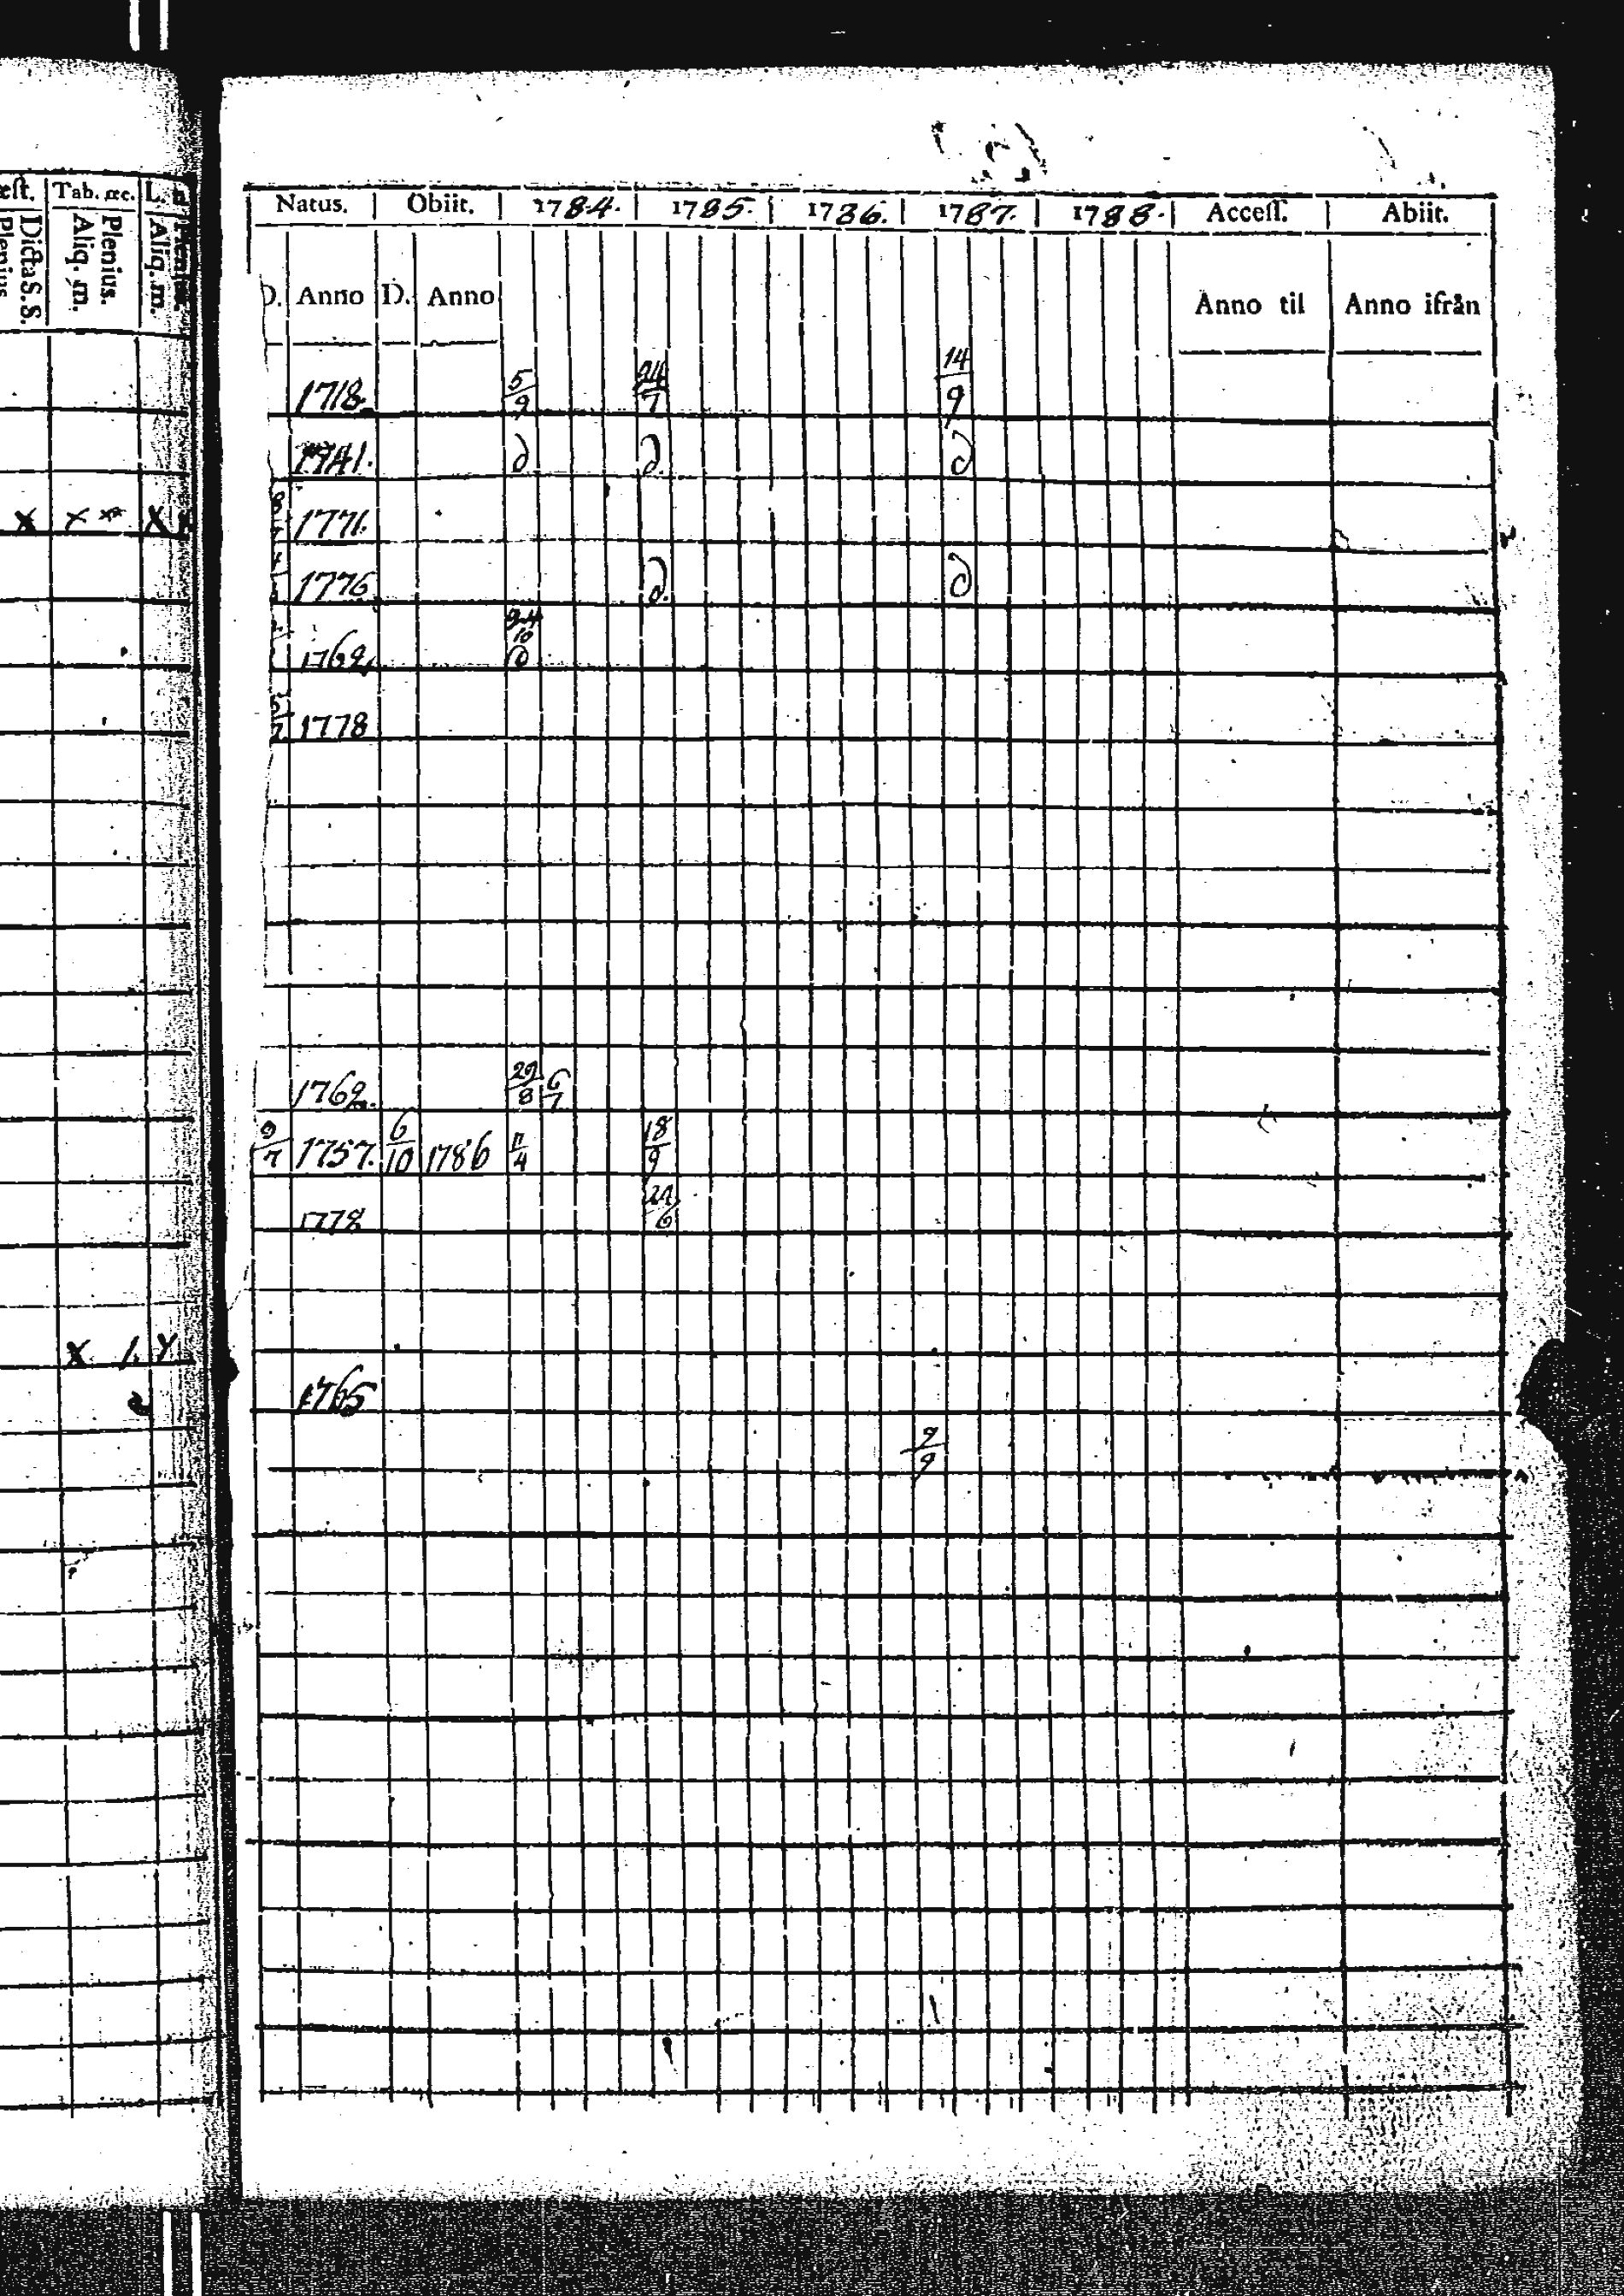 Tab. œc. L.
Dicta S. S. Plenius. Aliq. m. Aliq. m.
Natus. Obiit. 1784. 1785. 1786. 1787. 1788. Access. Abiit.
D. Anno D. Anno Anno til Anno ifrån
1718. 5/9 24/7 14/9
1741. d. d. d
x x x x 1771.
1776 d. d
1762 24/10 d
5/7 1778
1762. 29/8 6/7
9/7 1757. 6/10 1786 11/4 18/9
1778 21/6
x 1. x
1765
9/9